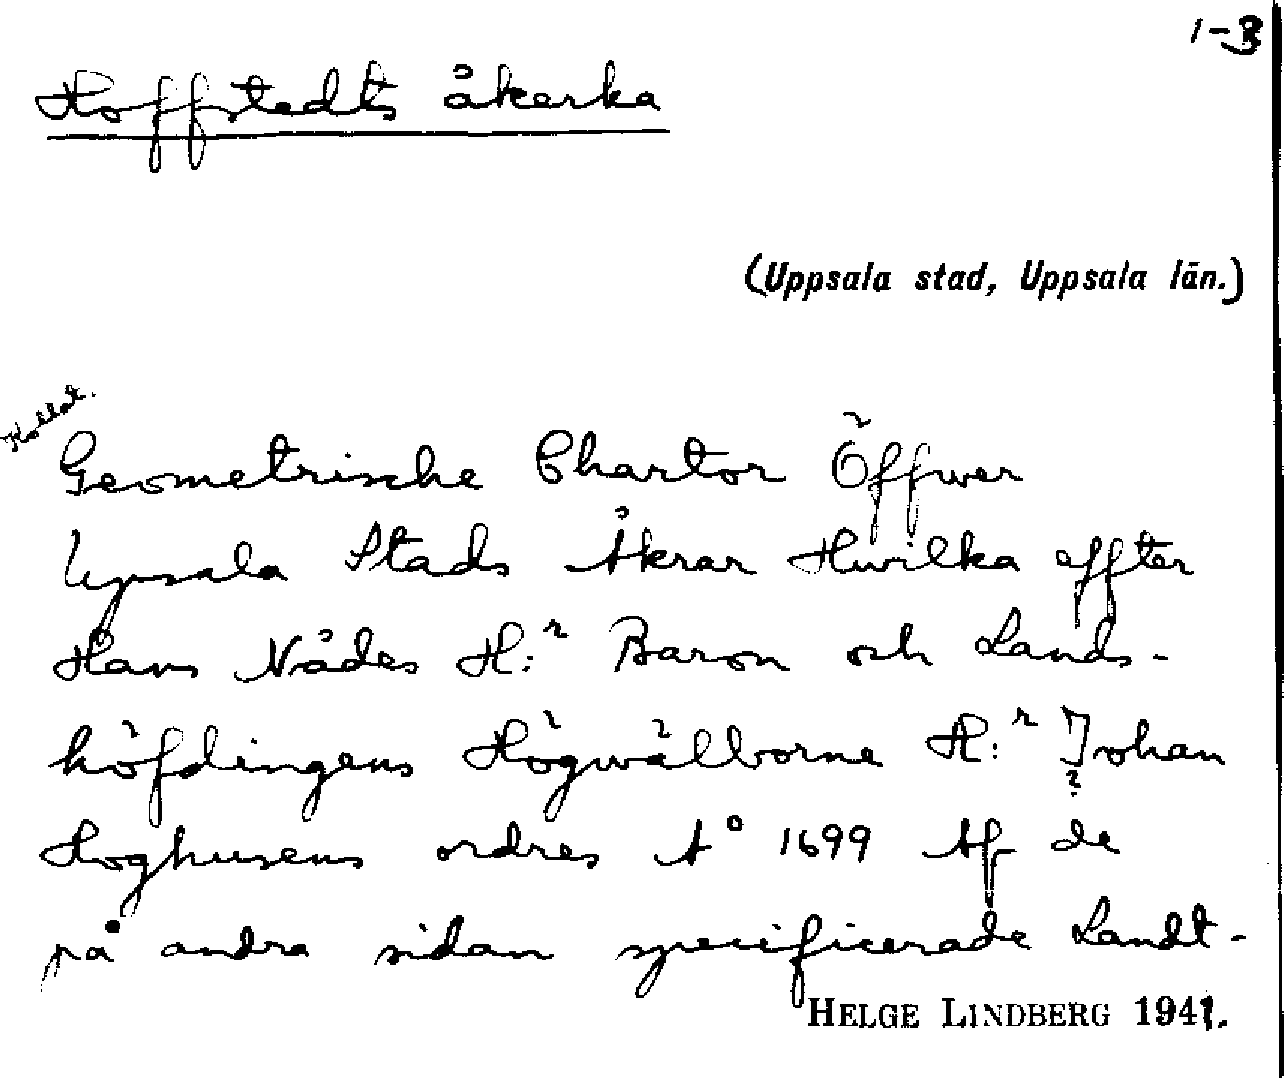 1-3
Hoffstedts åkerka
(Uppsala stad, Uppsala län.)
Kollat.
Geometrische Chartor Öffwer
Upsala Stads Åkrar Hwilka effter
Hans Nådes H:r Baron och Lands-
höfdingens Högwälborne H:r Johan
Hoghusens ordres A° 1699 Af de
på andra sidan specificerade Landt-
HELGE LINDBERG 1941.